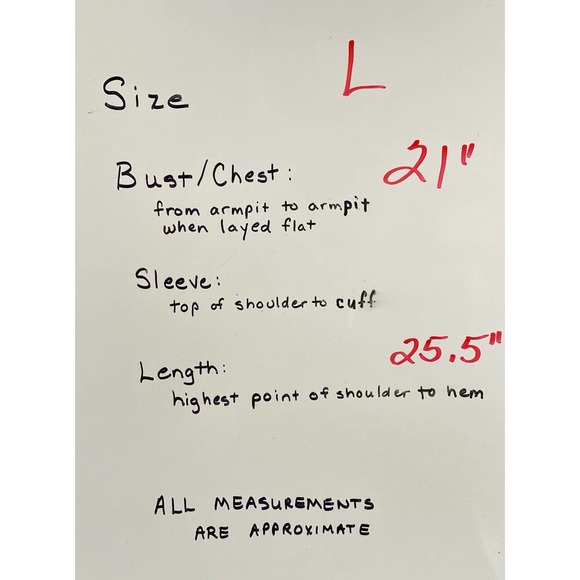 Size L
Bust/Chest: 21"
from armpit to armpit
when layed flat
Sleeve:
top of shoulder to cuff
Length: 25.5"
highest point of shoulder to hem
ALL MEASUREMENTS
ARE APPROXIMATE